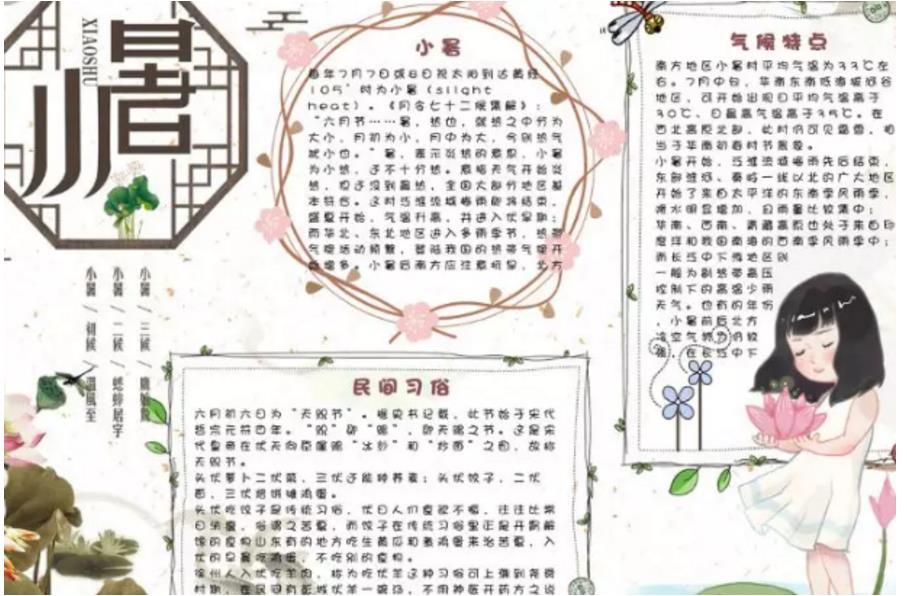 小暑
XIAOSHU
小暑
每年7月7日或8日视太阳到达黄经
105°时为小暑(slight
heat)。《月令七十二候集解》:
“六月节……暑,热也,就热之中分为
大小,月初为小,月中为大,今则热气
犹小也。”暑,表示炎热的意思,小暑
为小热,还不十分热。意指天气开始炎
热,但还没到最热,全国大部分地区基
本符合。这时江淮流域梅雨即将结束,
盛夏开始,气温升高,并进入伏旱期;
而华北、东北地区进入多雨季节,热带
气旋活动频繁,登陆我国的热带气旋开
始增多。小暑后南方应注意抗旱,北方
气候特点
南方地区小暑时平均气温为33℃左
右。7月中旬,华南东南低海拔河谷
地区,可开始出现日平均气温高于
30℃、日最高气温高于35℃。在
西北高原北部,此时仍可见霜雪,相
当于华南初春时节景象。
小暑开始,江淮流域梅雨先后结束,
东部淮河、秦岭一线以北的广大地区
开始了来自太平洋的东南季风雨季,
降水明显增加,且雨量比较集中;
华南、西南、青藏高原也处于来自印
度洋和我国南海的西南季风雨季中;
而长江中下游地区则
一般为副热带高压
控制下的高温少雨
天气。也有的年份
,小暑前后北方
冷空气势力仍较
强,在长江中下
小暑/三候/鹰始
小暑/二候/蟋蟀居宇
小暑/初候/温風至
民间习俗
六月初六日为“天贶节”。据史书记载,此节始于宋代
哲宗元符四年。“贶”即“赐”,即天赐之节。这是宋
代皇帝在伏天向臣属赐“冰麨”和“炒面”之图,故称
天贶节。
头伏萝卜二伏菜,三伏还能种荞麦;头伏饺子,二伏
面,三伏烙饼摊鸡蛋。
头伏吃饺子是传统习俗,伏日人们食欲不振,往往比常
日消瘦,俗谓之苦夏,而饺子在传统习俗里正是开胃解
馋的食物山东有的地方吃生黄瓜和煮鸡蛋来治苦夏,入
伏的早晨吃鸡蛋,不吃别的食物。
徐州人入伏吃羊肉,称为吃伏羊这种习俗可上溯到尧舜
时期,在民间有彭城伏羊一碗汤,不用神医开药方之说